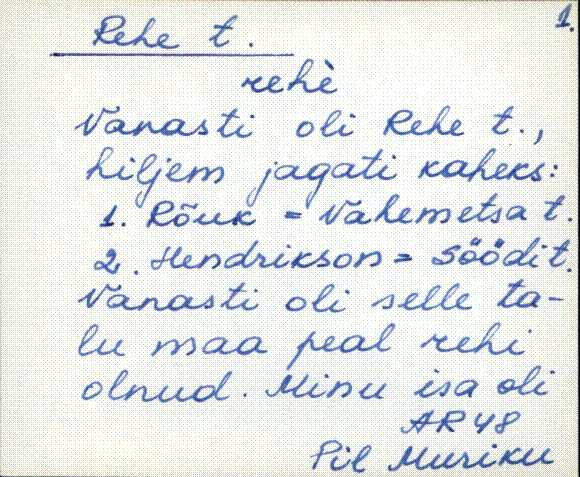 1.
Rehe t.
rehè
Vanasti oli Rehe t.,
hiljem jagati kaheks:
1. Rõuk = Vahemetsa t.
2. Hendrikson = Söödi t.
Vanasti oli selle ta-
lu maa peal rehi
olnud. Minu isa oli
AR 48
Pil Muriku